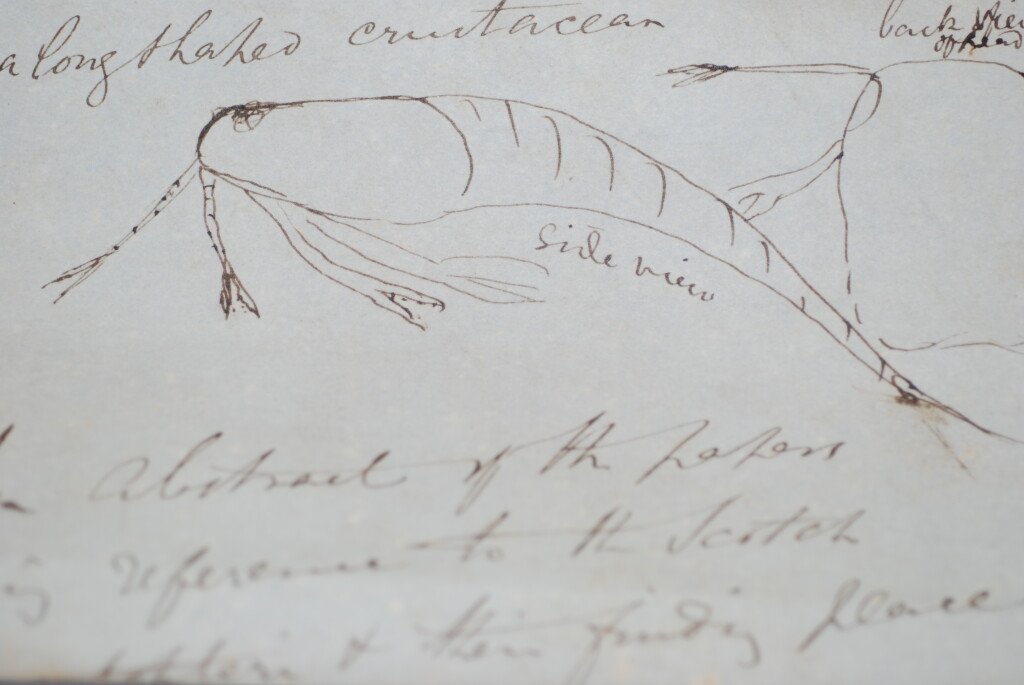 a long shaped crustacean
back view
of head
Side view
Abstract of the papers
reference to the Scotch
& their finding place